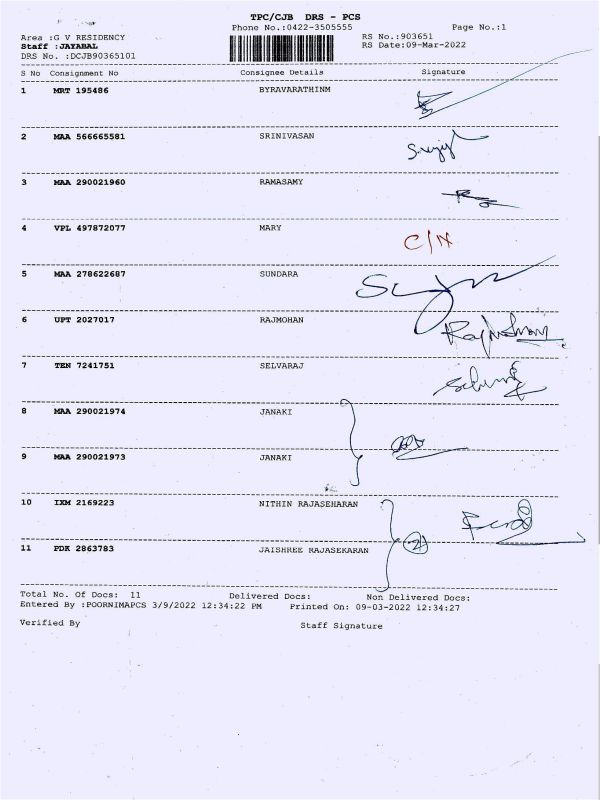 TPC/CJB DRS - PCS
Phone No.:0422-3505555 Page No.:1
Area :G V RESIDENCY RS No.:903651
Staff :JAYABAL RS Date:09-Mar-2022
DRS No. :DCJB90365101
S No Consignment No Consignee Details Signature
1 MRT 195486 BYRAVARATHINM
2 MAA 566665581 SRINIVASAN
3 MAA 290021960 RAMASAMY
4 VPL 497872077 MARY C/N
5 MAA 278622687 SUNDARA
6 UPT 2027017 RAJMOHAN
7 TEN 7241751 SELVARAJ
8 MAA 290021974 JANAKI
9 MAA 290021973 JANAKI
10 IXM 2169223 NITHIN RAJASEHARAN
11 PDK 2863783 JAISHREE RAJASEKARAN
Total No. Of Docs: 11 Delivered Docs: Non Delivered Docs:
Entered By :POORNIMAPCS 3/9/2022 12:34:22 PM Printed On: 09-03-2022 12:34:27
Verified By Staff Signature